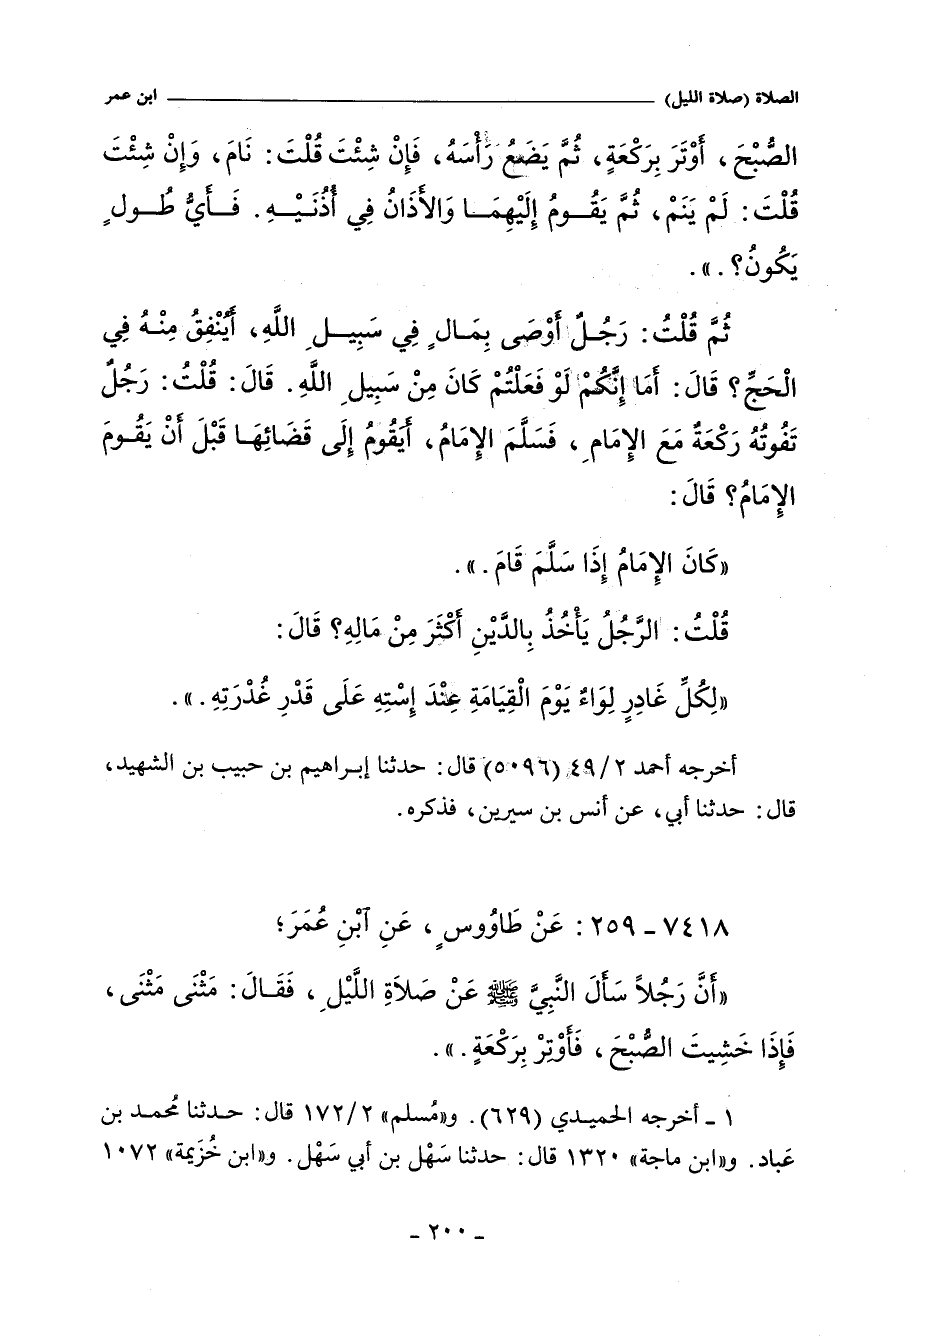 الصلاة (صلاة الليل) ابن عمر
الصُّبْحَ، أَوْتَرَ بِرَكْعَةٍ، ثُمَّ يَضَعُ رَأْسَهُ، فَإِنْ شِئْتَ قُلْتَ: نَامَ، وَإِنْ شِئْتَ
قُلْتَ: لَمْ يَنَمْ، ثُمَّ يَقُومُ إِلَيْهِمَا وَالأَذَانُ فِي أُذُنَيْهِ. فَأَيُّ طُولٍ
يَكُونُ؟.».
ثُمَّ قُلْتُ: رَجُلٌ أَوْصَى بِمَالٍ فِي سَبِيلِ اللَّهِ، أَيُنْفِقُ مِنْهُ فِي
الْحَجِّ؟ قَالَ: أَمَا إِنَّكُمْ لَوْ فَعَلْتُمْ كَانَ مِنْ سَبِيلِ اللَّهِ. قَالَ: قُلْتُ: رَجُلٌ
تَفُوتُهُ رَكْعَةٌ مَعَ الإِمَامِ، فَسَلَّمَ الإِمَامُ، أَيَقُومُ إِلَى قَضَائِهَا قَبْلَ أَنْ يَقُومَ
الإِمَامُ؟ قَالَ:
«كَانَ الإِمَامُ إِذَا سَلَّمَ قَامَ.».
قُلْتُ: الرَّجُلُ يَأْخُذُ بِالدَّيْنِ أَكْثَرَ مِنْ مَالِهِ؟ قَالَ:
«لِكُلِّ غَادِرٍ لِوَاءٌ يَوْمَ الْقِيَامَةِ عِنْدَ إِسْتِهِ عَلَى قَدْرِ غُدْرَتِهِ.».
أخرجه أحمد ٤٩/٢ (٥٠٩٦) قال: حدثنا إبراهيم بن حبيب بن الشهيد،
قال: حدثنا أبي، عن أنس بن سيرين، فذكره.
٧٤١٨ - ٢٥٩: عَنْ طَاوُوسٍ، عَنِ ٱبْنِ عُمَرَ؛
«أَنَّ رَجُلاً سَأَلَ النَّبِيَّ ﷺ عَنْ صَلاَةِ اللَّيْلِ، فَقَالَ: مَثْنَى مَثْنَى،
فَإِذَا خَشِيتَ الصُّبْحَ، فَأَوْتِرْ بِرَكْعَةٍ.».
١ - أخرجه الحميدي (٦٢٩). و«مُسلم» ١٧٢/٢ قال: حدثنا مُحمد بن
عَباد. و«ابن ماجة» ١٣٢٠ قال: حدثنا سَهْل بن أبي سَهْل. و«ابن خُزَيمة» ١٠٧٢
- ٢٠٠ -